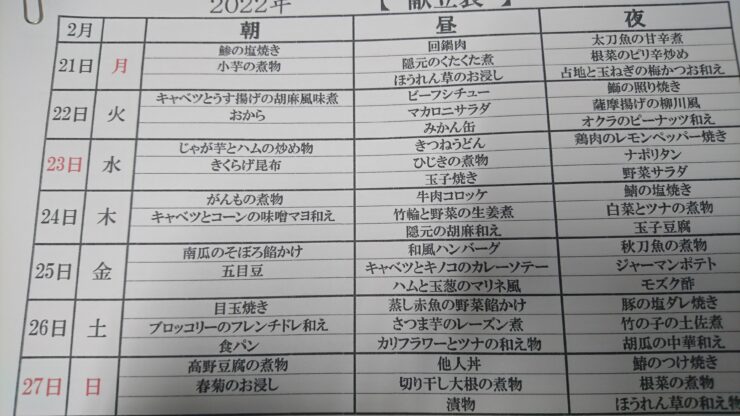 2022年 【 献立表 】
2月 朝 昼 夜
21日 月
鯵の塩焼き
小芋の煮物
回鍋肉
隠元のくたくた煮
ほうれん草のお浸し
太刀魚の甘辛煮
根菜のピリ辛炒め
占地と玉ねぎの梅かつお和え
22日 火
キャベツとうす揚げの胡麻風味煮
おから
ビーフシチュー
マカロニサラダ
みかん缶
鰤の照り焼き
薩摩揚げの柳川風
オクラのピーナッツ和え
23日 水
じゃが芋とハムの炒め物
きくらげ昆布
きつねうどん
ひじきの煮物
玉子焼き
鶏肉のレモンペッパー焼き
ナポリタン
野菜サラダ
24日 木
がんもの煮物
キャベツとコーンの味噌マヨ和え
牛肉コロッケ
竹輪と野菜の生姜煮
隠元の胡麻和え
鯖の塩焼き
白菜とツナの煮物
玉子豆腐
25日 金
南瓜のそぼろ餡かけ
五目豆
和風ハンバーグ
キャベツとキノコのカレーソテー
ハムと玉葱のマリネ風
秋刀魚の煮物
ジャーマンポテト
モズク酢
26日 土
目玉焼き
ブロッコリーのフレンチドレ和え
食パン
蒸し赤魚の野菜餡かけ
さつま芋のレーズン煮
カリフラワーとツナの和え物
豚の塩ダレ焼き
竹の子の土佐煮
胡瓜の中華和え
27日 日
高野豆腐の煮物
春菊のお浸し
他人丼
切り干し大根の煮物
漬物
鰆のつけ焼き
根菜の煮物
ほうれん草の和え物